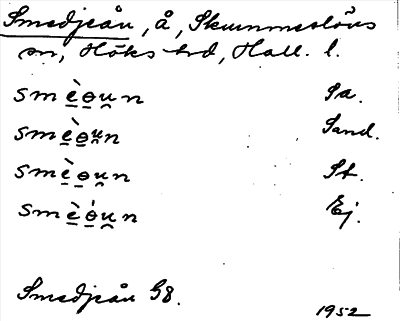 Smedjeån, å, Skummeslövs
sn, Höks hd, Hall. l.
smèɵun Sa.
smèɵun Sand.
smèɵun St.
smèɵ́un Ej.
Smedjeån G8.
1952